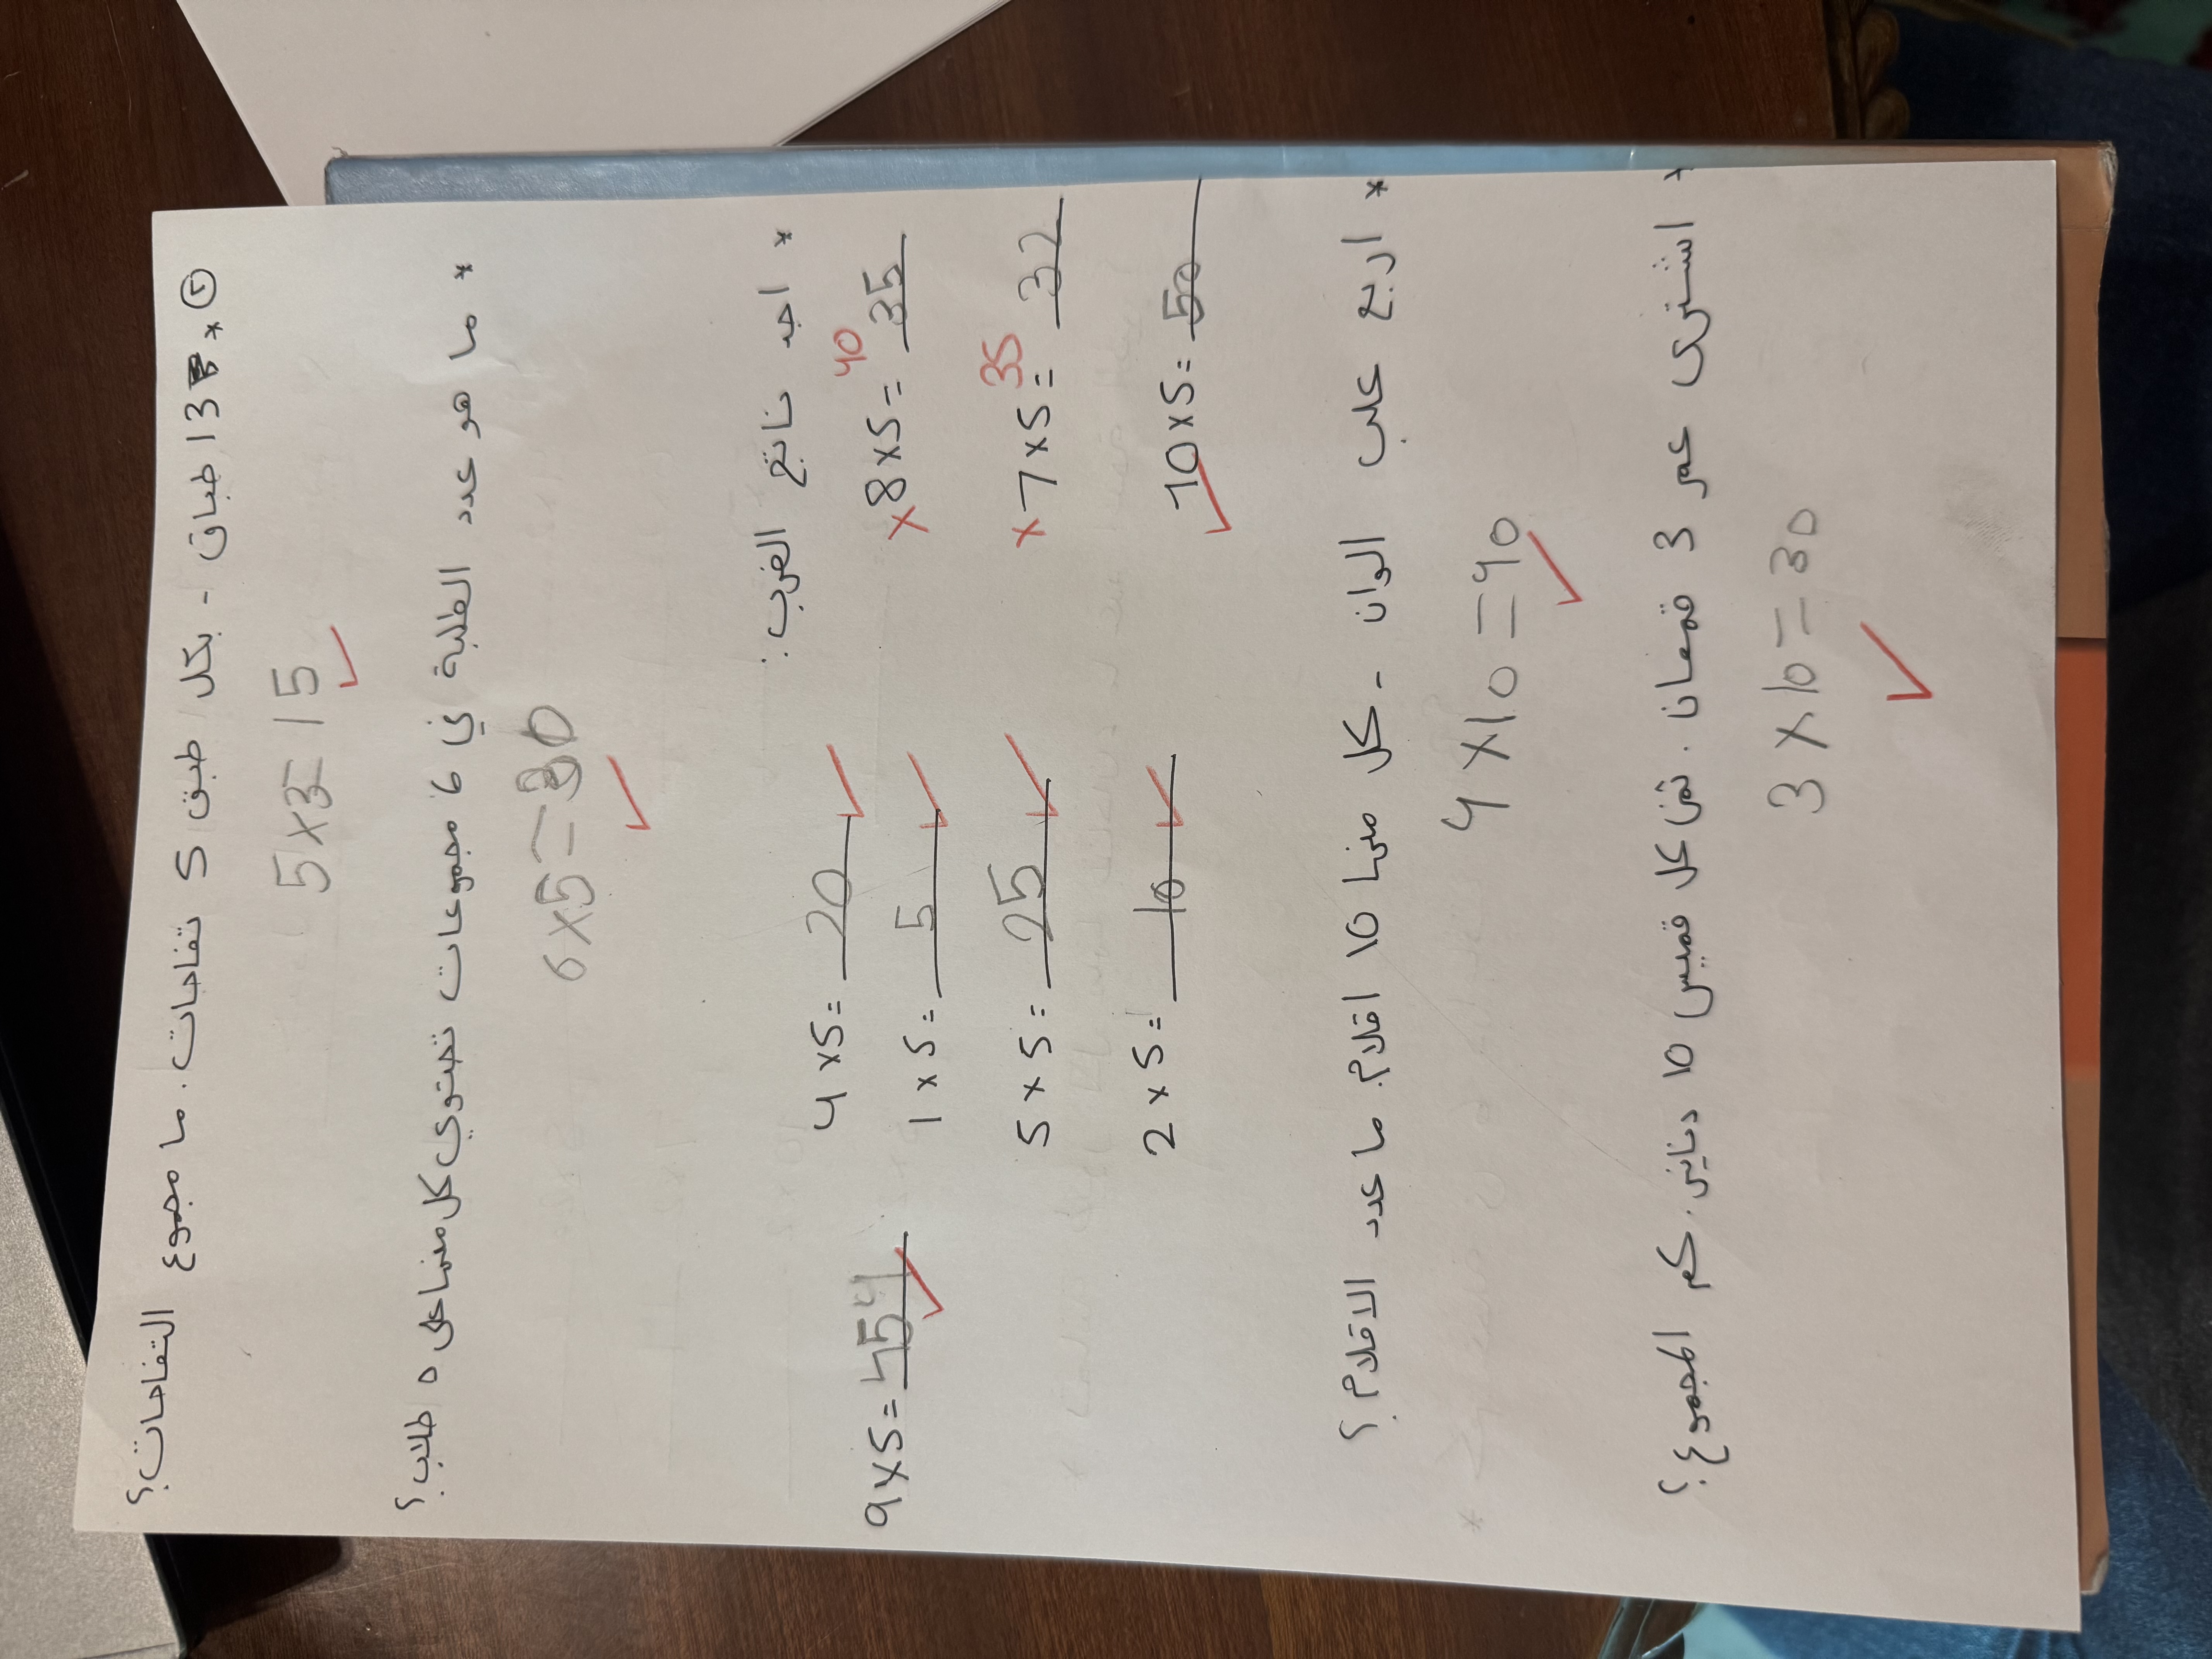 ② * 3 اطباق - بكل طبق 5 تفاحات. ما مجموع التفاحات؟
5×3=15
* ما هو عدد الطلبة في 6 مجموعات تحتوي كل منها على ٥ طلاب؟
6×5=30
* اجد ناتج الضرب:
×8×5=35 40
4×5=20
9×5=45
1×5=5
×7×5=32 35
5×5=25
10×5=50
2×5=10
* اربع علب الوان - كل منها 10 اقلام. ما عدد الاقلام؟
4×10=40
* اشترى عمر 3 قمصان. ثمن كل قميص 10 دنانير. كم المجموع؟
3×10=30